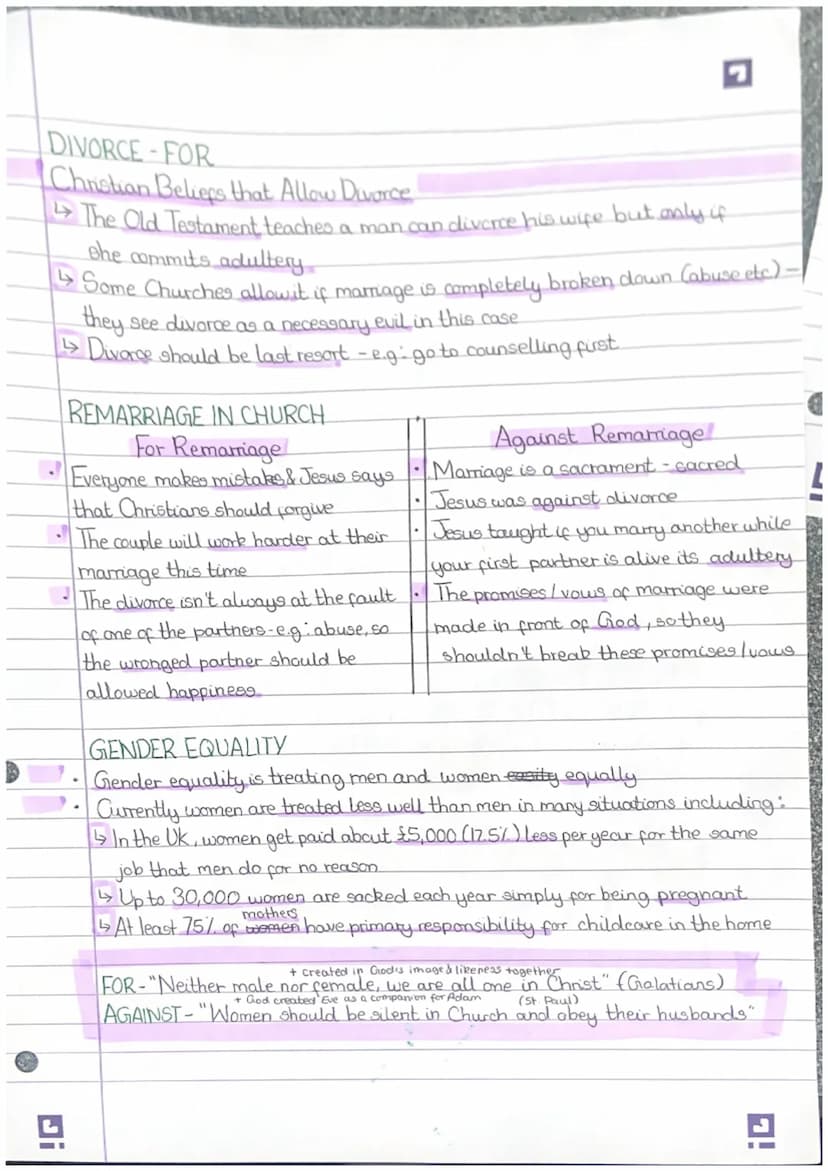 DIVORCE - FOR
Christian Beliefs that Allow Divorce
↳ The Old Testament teaches a man can divorce his wife but only if
she commits adultery
↳ Some Churches allow it if marriage is completely broken down (abuse etc) -
they see divorce as a necessary evil in this case
↳ Divorce should be last resort - e.g: go to counselling first
REMARRIAGE IN CHURCH
For Remarriage
• Everyone makes mistakes & Jesus says
that Christians should forgive
• The couple will work harder at their
marriage this time
• The divorce isn't always at the fault
of one of the partners - e.g: abuse, so
the wronged partner should be
allowed happiness
Against Remarriage
• Marriage is a sacrament - sacred
• Jesus was against divorce
• Jesus taught if you marry another while
your first partner is alive its adultery
• The promises / vows of marriage were
made in front of God, so they
shouldn't break these promises / vows
GENDER EQUALITY
• Gender equality is treating men and women equally
• Currently women are treated less well than men in many situations including:
↳ In the UK, women get paid about £5,000 (17.5%) less per year for the same
job that men do for no reason
↳ Up to 30,000 women are sacked each year simply for being pregnant
mothers
↳ At least 75% of women have primary responsibility for childcare in the home
+ created in God's image & likeness together
FOR - "Neither male nor female, we are all one in Christ" (Galatians)
+ God created Eve as a companion for Adam (St. Paul)
AGAINST - "Women should be silent in Church and obey their husbands"